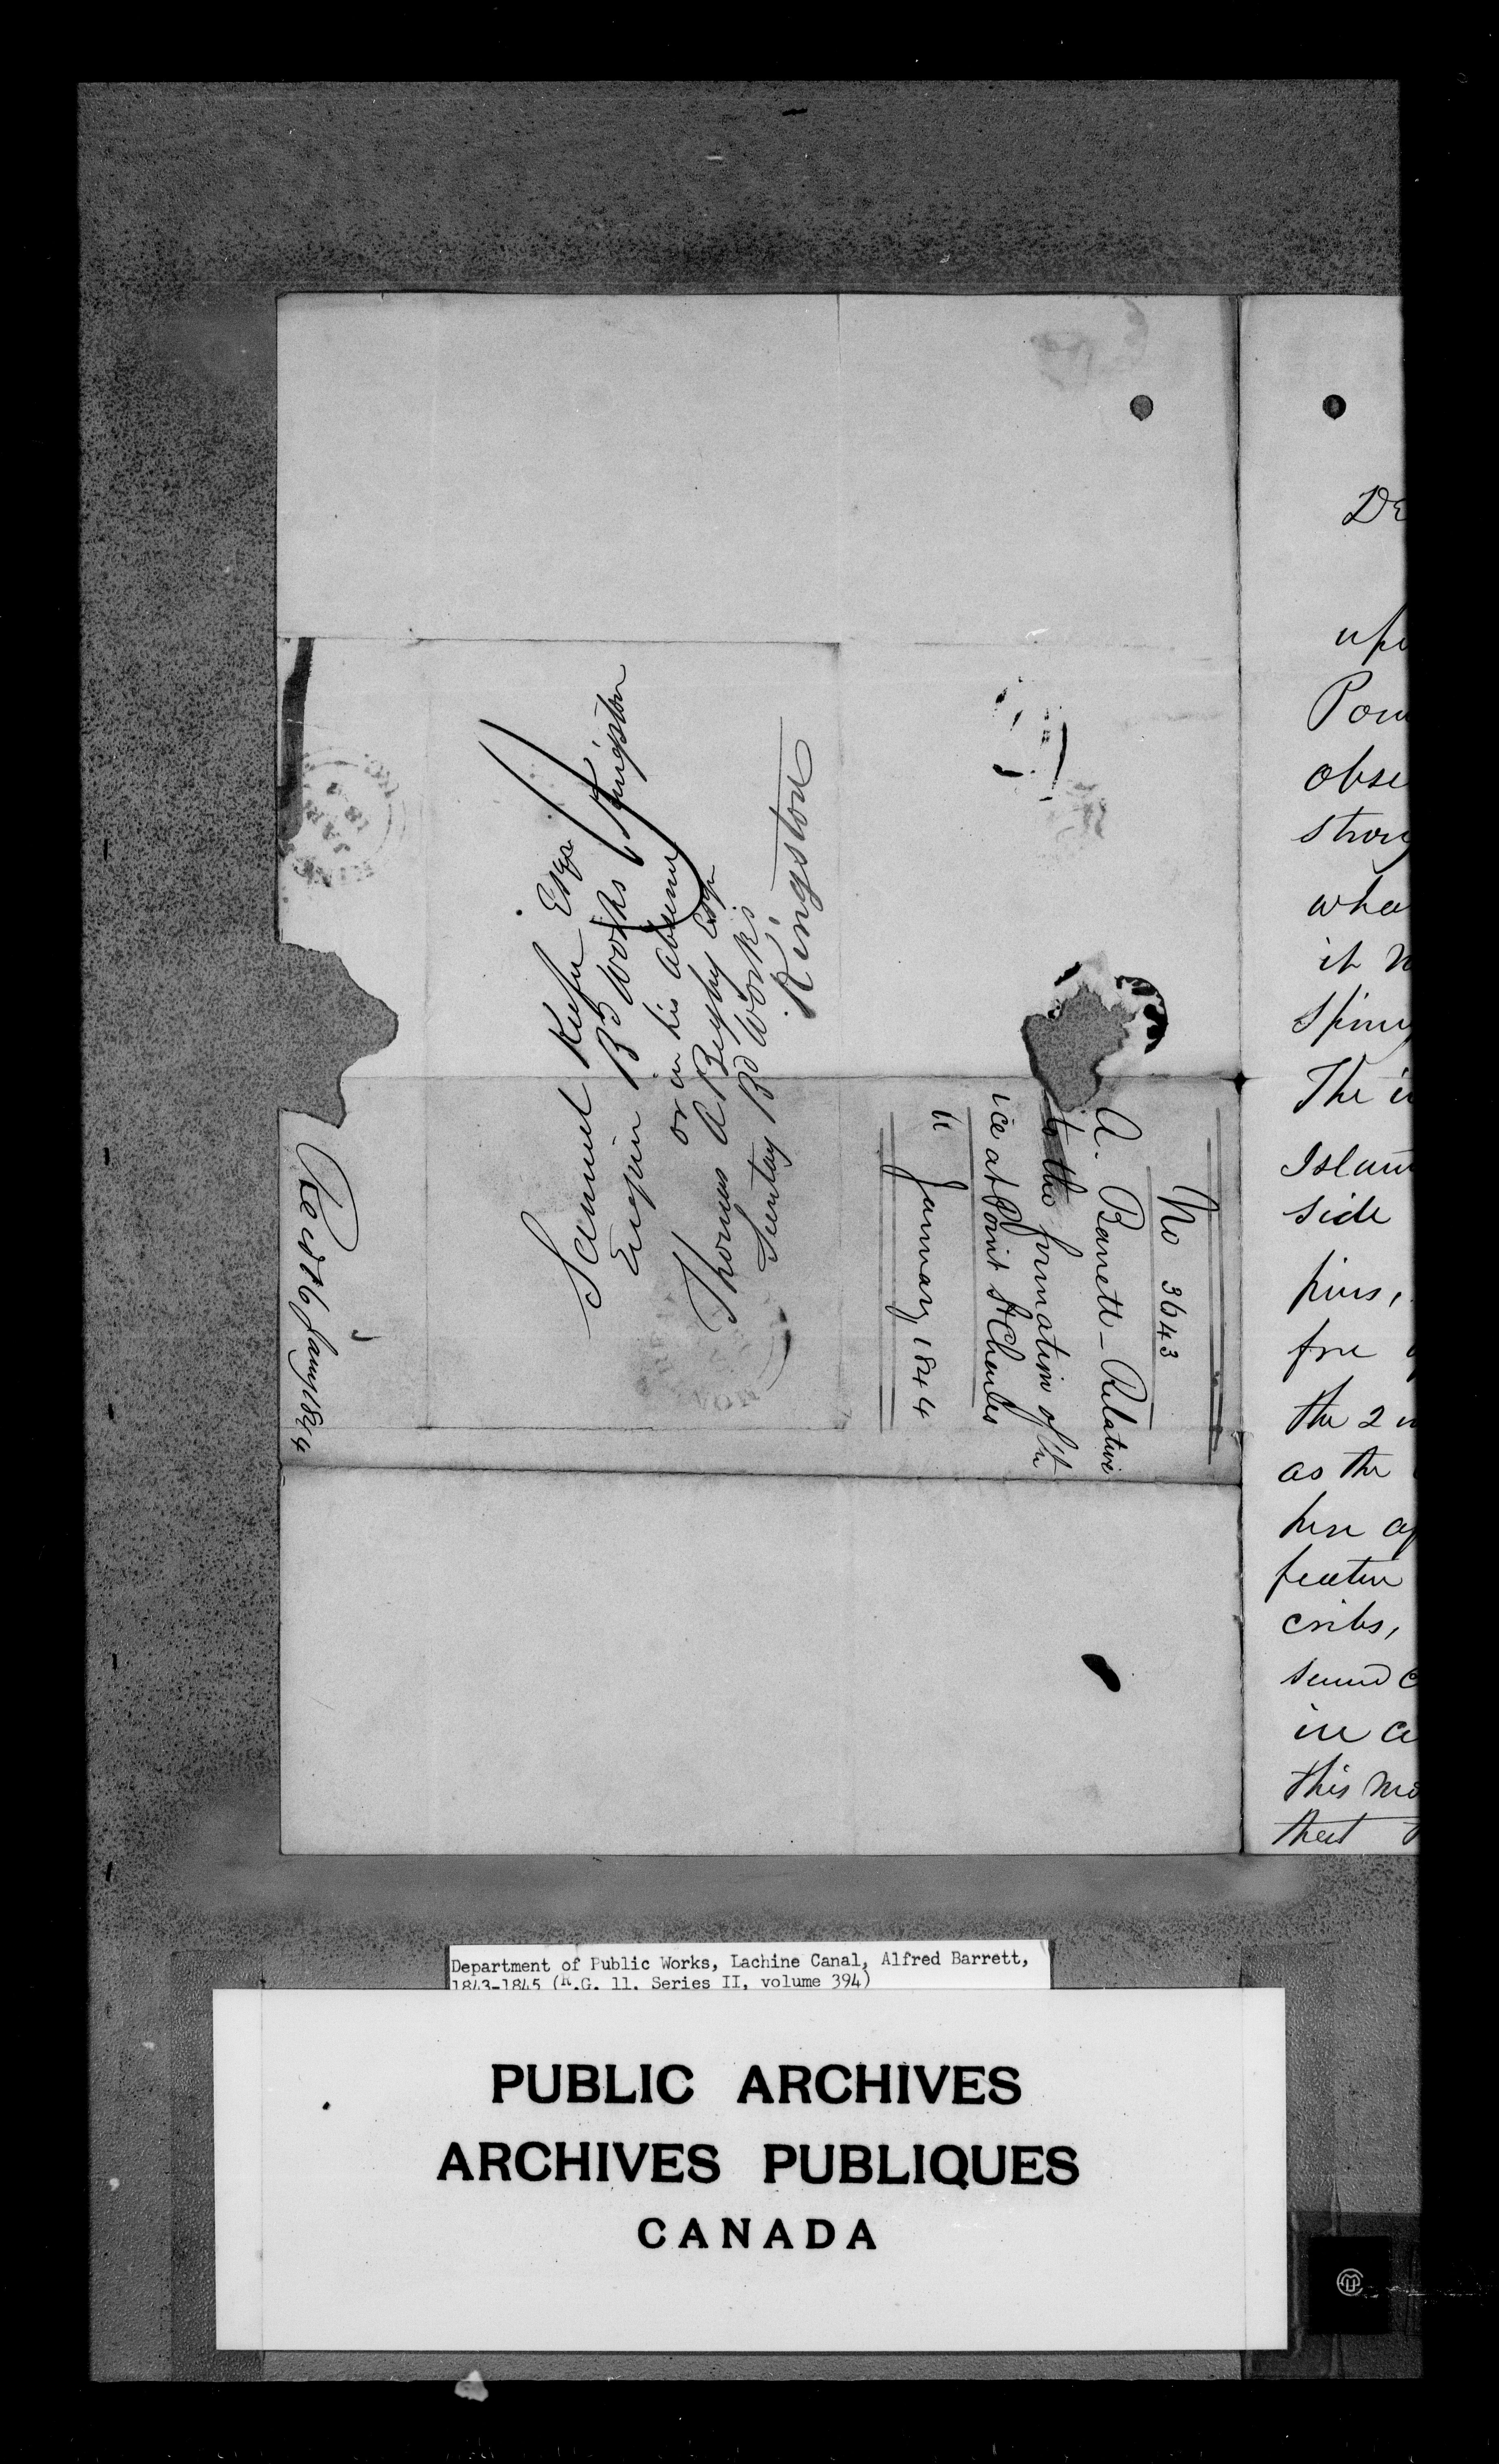 Samuel Keefer Esqr
Engin Bd Works Kingston
or in his absence
Thomas A Begly Esqr
Secretary Bd Works
Kingston
No 3643
A. Barrett - Relative
to the formation of the
ice at Point St Charles
11 January 1844
Recd 16 Jany 1844
De
upo
Poin
obse
strong
wha
it
Spring
The
Island
side
piers,
free
the 2
as the
here
feature
cribs,
in
this
that
Department of Public Works, Lachine Canal, Alfred Barrett,
1843-1845 (R.G. 11, Series II, volume 394)
PUBLIC ARCHIVES
ARCHIVES PUBLIQUES
CANADA